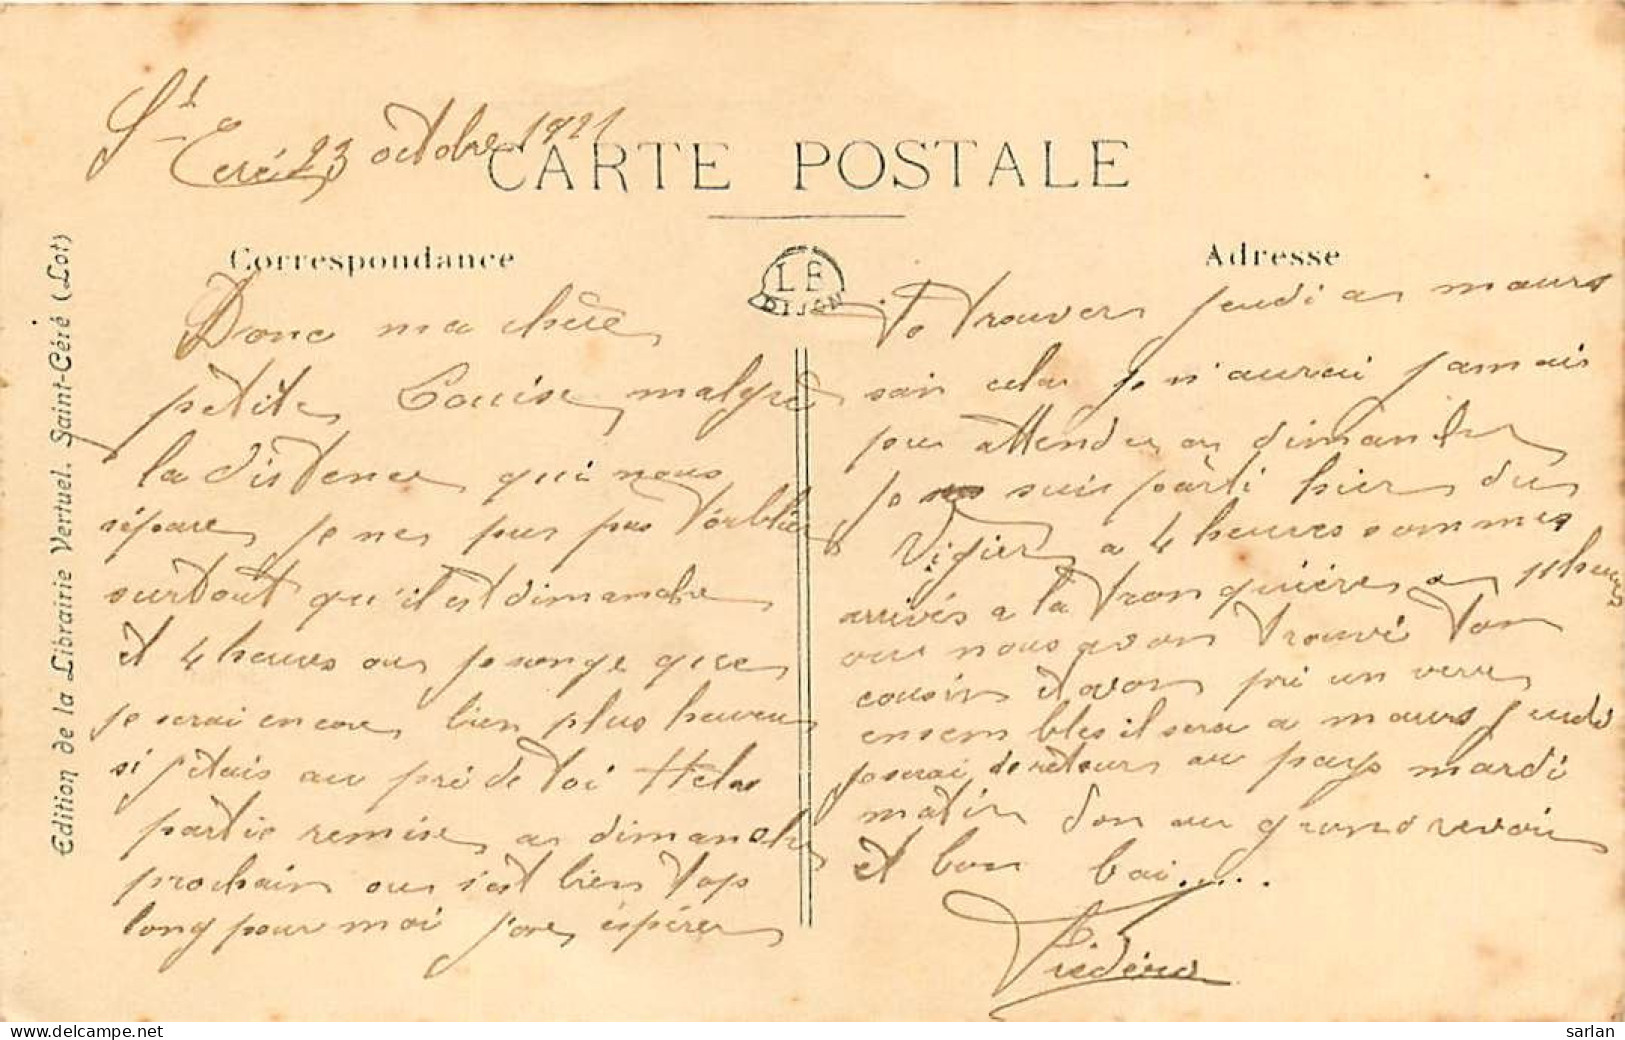 St Ceré 23 octobre 1921
CARTE POSTALE
Correspondance
Adresse
LB
DIJON
Edition de la Librairie Vertuel. Saint-Céré (Lot)
Donc ma chère
petite Louise malgré
la distence qui nous
sépare je ne pus pas
surtout qu'il est dimanche
et 4 heures ou je songe que
je serai encore bien plus heureu
si j'étais au pré de toi Helas
partie remise a dimanche
prochain ou s'est bien Top
long pour moi j'ore éspérer
Te trouver jeudi a maurs
san cela je n'aurai jamais
pu attendre a dimanche
je suis parti hier du
Vigier a 4 heures sommes
arrivés a la Tronquière a 11 heures
ou nous avon Trouvé Ton
cousin et avon pri un verre
ensembles il sera a maurs jeudi
je serai de retour au pays mardi
matin don au grand revoir
et bon bai.....